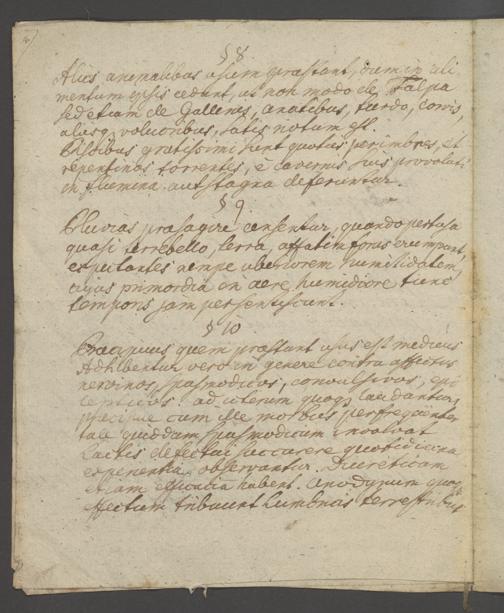 § 8
Aliis animalibus usum præstant, dum in ali-
mentum ipsis cedunt, ut non modo de Talpa
sed etiam de Gallinis, anatibus, turdo, corvis,
aliisq. volucribus, satis notum est.
Piscibus gratissimi sunt quoties per imbres, et
repentinos torrentes, è cavernis suis provoluti
in flumina aut stagna deferuntur.
§ 9
Pluvias præsagire censentur, quando pertusa
quasi terebello, terra, affatim foras erumpunt,
expectantes nempe uberiorem humiditatem,
cujus primordia in aere humidiore tunc
temporis jam persentiscunt.
§ 10
Præcipuus quem præstant usus est medicus
Adhibentur vero in genere contra affectus
nervinos, spasmodicos, convulsivos, epi
lepticos. ad uterum quoq. laudantur,
præcipue cum ille morbus per frequenter
tale quiddam spasmodicum involvat
Lactis defectui succurrere quotidiana
experientia observantur. Diureticam
etiam efficacia habent. Anodynum quoq
effectum tribuunt Lumbricis terrestribus